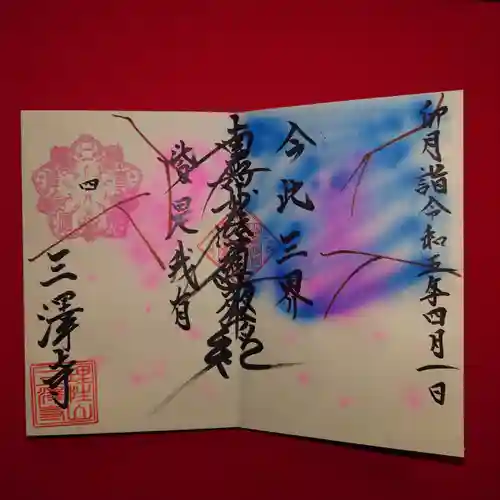 卯月詣令和五年四月一日
今此三界
南無妙法蓮華経
皆是我有
四
三澤寺